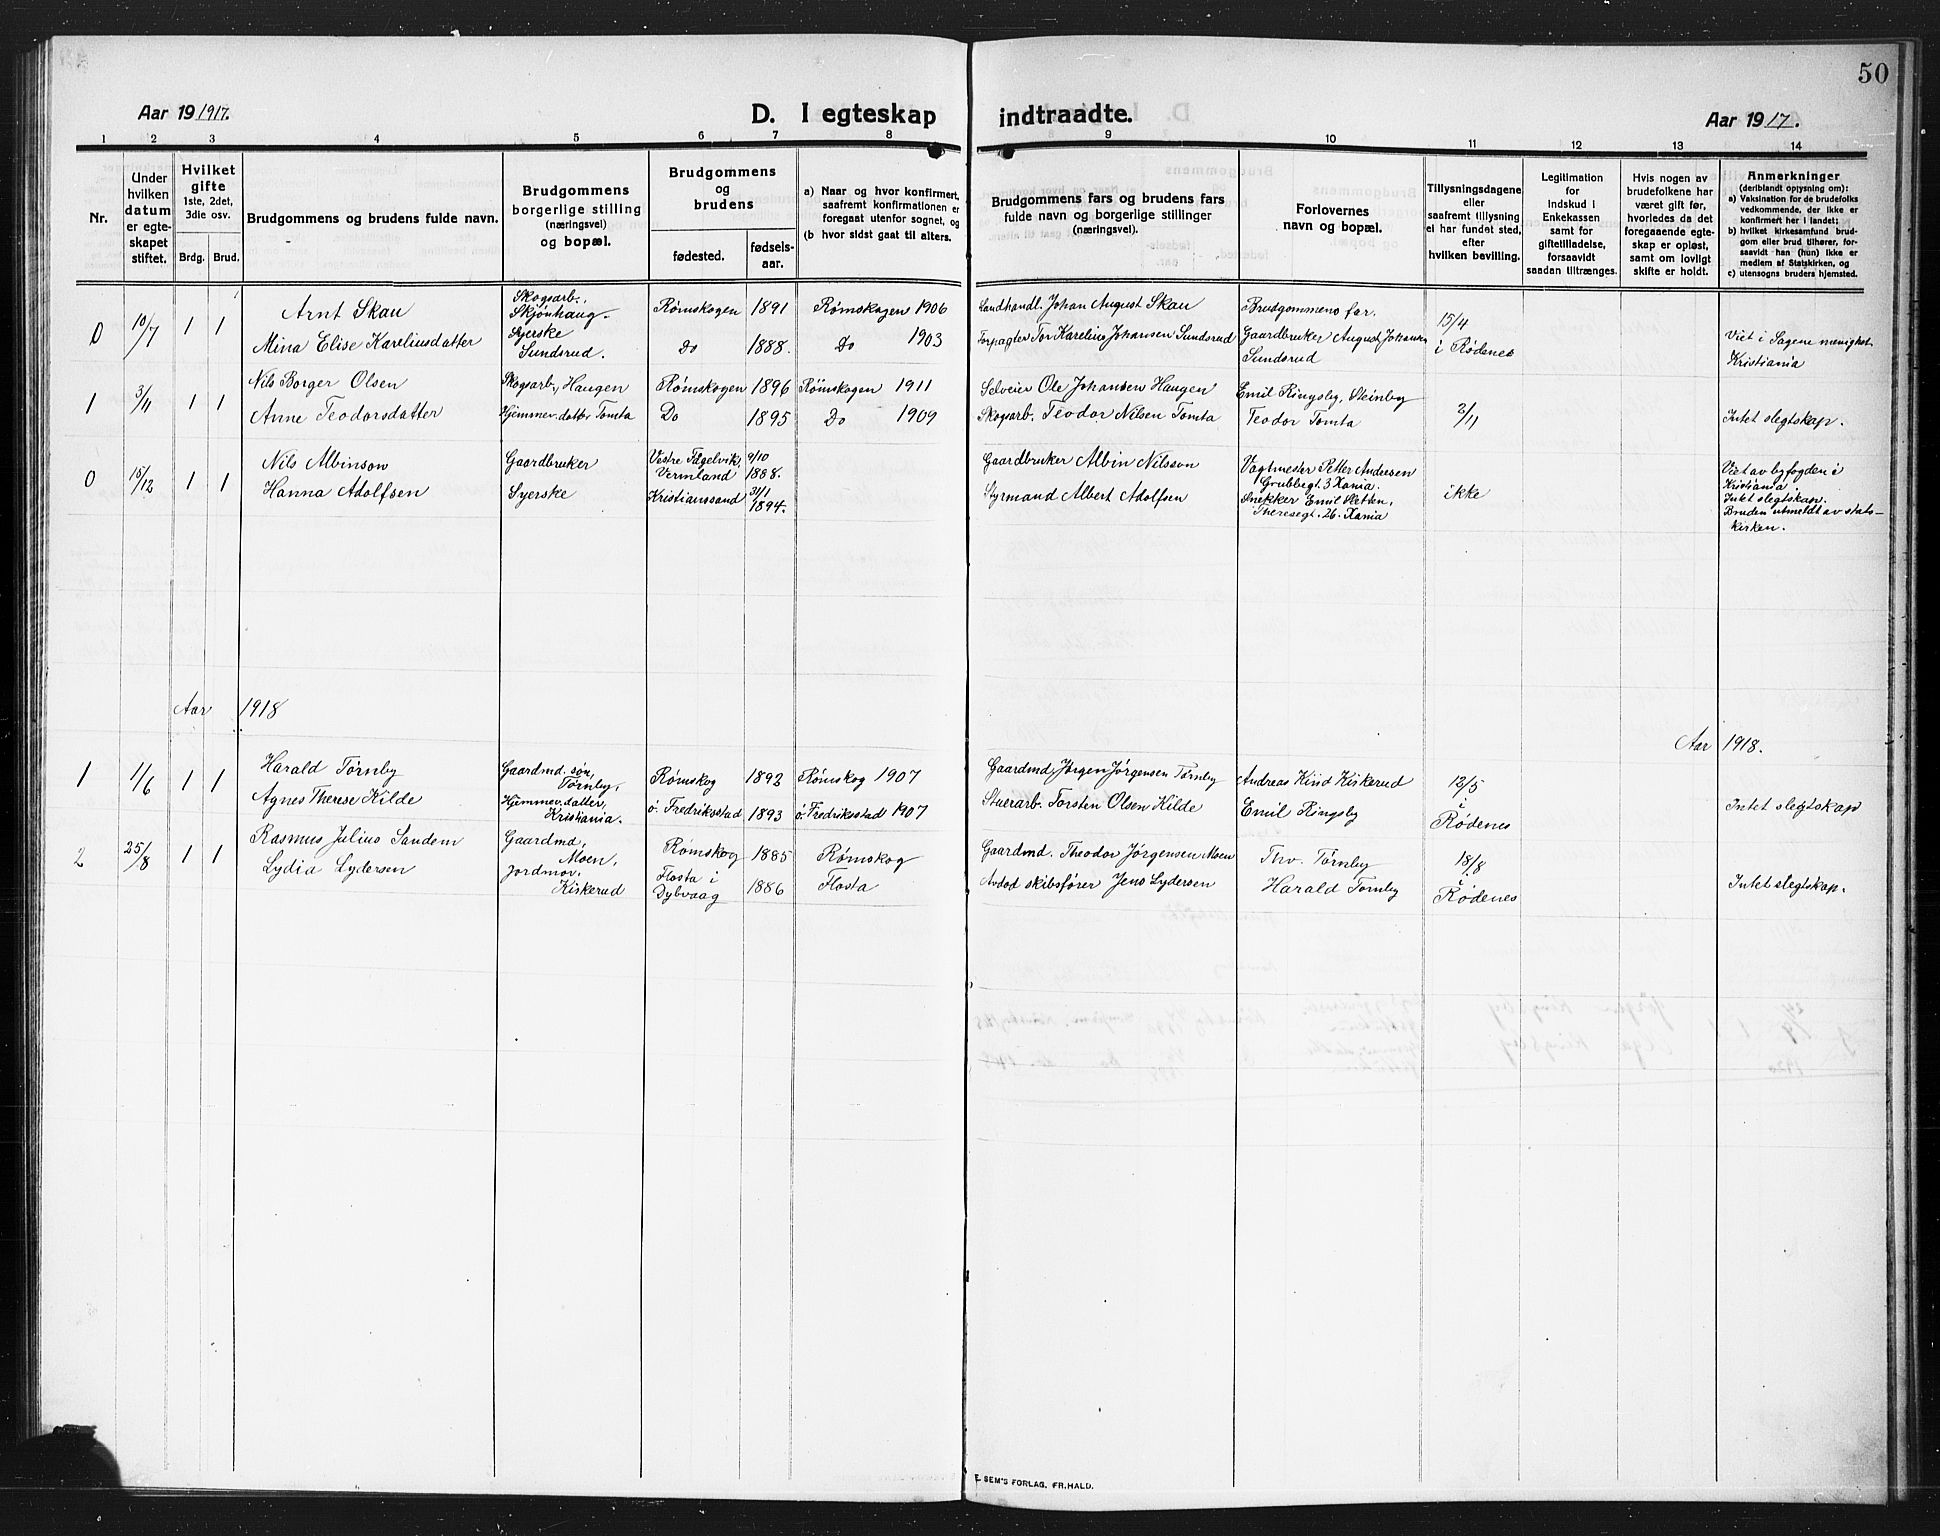 50
Aar 19 1917.
D. I egteskap indtraadte.
Aar 19 17.
1 2 3 4 5 6 7 8 9 10 11 12 13 14
Nr.
Under hvilken datum er egteskapet stiftet.
Hvilket gifte 1ste, 2det, 3die osv.
Brdg. Brud.
Brudgommens og brudens fulde navn.
Brudgommens borgerlige stilling (næringsvei) og bopæl.
Brudgommens og brudens
fødested.
fødselsaar.
a) Naar og hvor konfirmert, saafremt konfirmationen er foregaat utenfor sognet, og
(b hvor sidst gaat til alters.
Brudgommens fars og brudens fars fulde navn og borgerlige stillinger (næringsvei).
Forlovernes navn og bopæl.
Tillysningsdagene eller saafremt tillysning ei har fundet sted, efter hvilken bevilling.
Legitimation for indskud i Enkekassen samt for giftetilladelse, forsaavidt saadan tiltrænges.
Hvis nogen av brudefolkene har været gift før, hvorledes da det foregaaende egteskap er opløst, samt om lovligt skifte er holdt.
Anmerkninger (deriblandt optysning om):
a) Vaksination for de brudefolks vedkommende, der ikke er konfirmert her i landet;
b) hvilket kirkesamfund brudgom eller brud tilhører, forsaavidt han (hun) ikke er medlem af Statskirken, og
c) utensogns bruders hjemsted.
0 10/7 1 1
Arnt Skau Skogsarb., Skjønhaug. Rømskogen 1891 Rømskogen 1906 Landhandl. Johan August Skau Brudgommens far. 15/4
Mina Elise Kareliusdatter Syerske Sundsrud. Do 1888. Do 1903 Forpagter Tor Karelius Johansen Sundsrud Gaardbruker August Johansen Sundsrud i Rødenes Viet i Sagene menighet Kristiania
1 3/4 1 1
Nils Borger Olsen Skogsarb., Haugen Rømskogen 1896 Rømskogen 1911 Selveier Ole Johansen Haugen Emil Ringsby, Steinby
Anne Teodorsdatter Hjemmev. datter Tomta Do 1895 Do 1909 Skogsarb. Teodor Nilsen Tomta Teodor Tomta 2/11 Intet slegtskap.
0 15/12 1 1
Nils Albinson Gaardbruker Vestre Fågelvik, Vermland 9/10 1888. Gaardbruker Albin Nilsson Vagtmester Petter Andersen Grubbegt. 3 Xania. Viet av byfogden i Kristiania.
Hanna Adolfsen Syerske Kristianssand 31/1 1894. Styrmand Albert Adolfsen Snekker Emil Sletten, Theresegt. 26. Xania ikke Intet slegtskap.
Bruden utmeldt av statskirken.
Aar 1918
Aar 1918.
1 1/6 1 1
Harald Tørnby Gaardmd. søn, Tørnby, Rømskog 1892 Rømskog 1907 Gaardmd. Jørgen Jørgensen Tørnby Andreas Kind Kiskerud 12/5
Agnes Therese Kilde Hjemmev. datter, Kristiania. ö. Fredriksstad 1893 ö. Fredriksstad 1907 Stuerarb. Torsten Olsen Kilde Emil Ringsby i Rødenes Intet slegtskap
2 25/8 1 1
Rasmus Julius Sandem Gaardmd, Moen, Rømskog 1885 Rømskog Gaardmd. Theodor Jørgensen Moen Thv. Tørnby 18/8
Lydia Lydersen Jordmor, Kiskerud Flosta i Dybvaag 1886 Flosta Avdød skibsfører Jens Lydersen Harald Tørnby i Rødenes Intet slegtskap.
E. SEM'S FORLAG, FR.HALD.